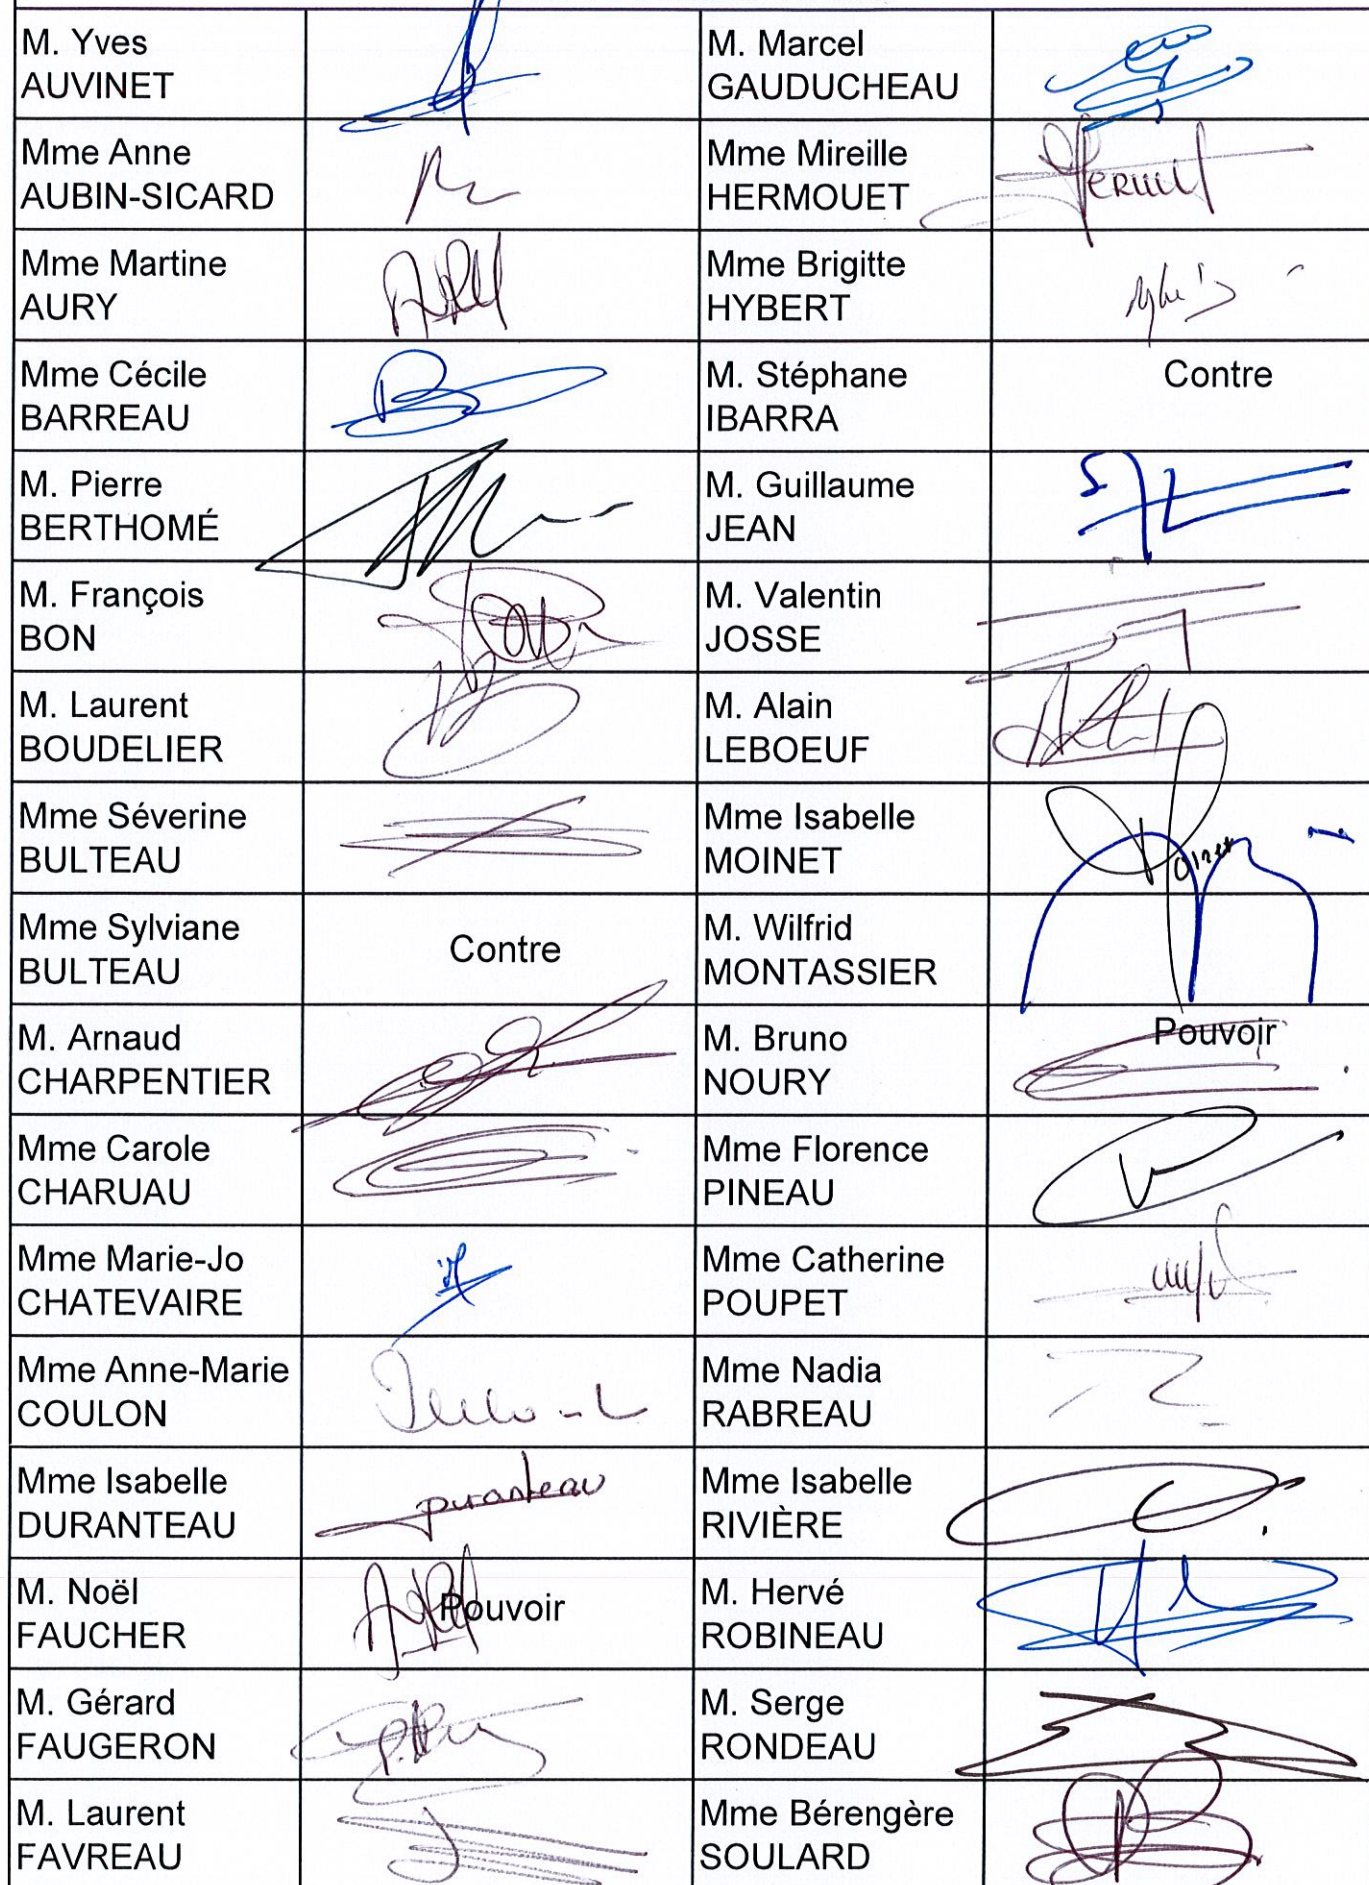 M. Yves
AUVINET
M. Marcel
GAUDUCHEAU
Mme Anne
AUBIN-SICARD
Mme Mireille
HERMOUET
Mme Martine
AURY
Mme Brigitte
HYBERT
Mme Cécile
BARREAU
M. Stéphane
IBARRA
Contre
M. Pierre
BERTHOMÉ
M. Guillaume
JEAN
M. François
BON
M. Valentin
JOSSE
M. Laurent
BOUDELIER
M. Alain
LEBOEUF
Mme Séverine
BULTEAU
Mme Isabelle
MOINET
Mme Sylviane
BULTEAU
Contre
M. Wilfrid
MONTASSIER
M. Arnaud
CHARPENTIER
M. Bruno
NOURY
Pouvoir
Mme Carole
CHARUAU
Mme Florence
PINEAU
Mme Marie-Jo
CHATEVAIRE
Mme Catherine
POUPET
Mme Anne-Marie
COULON
Mme Nadia
RABREAU
Mme Isabelle
DURANTEAU
Duranteau
Mme Isabelle
RIVIÈRE
M. Noël
FAUCHER
Pouvoir
M. Hervé
ROBINEAU
M. Gérard
FAUGERON
M. Serge
RONDEAU
M. Laurent
FAVREAU
Mme Bérengère
SOULARD